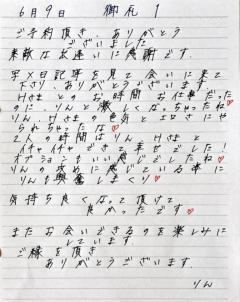 6月9日 御礼 1
ご予約頂き、ありがとう
ございました
素敵な出逢いに感謝です。
写メ日記等を見て会いに来て
下さり、ありがとうございます。
Hさまとのお時間 お仕事だった
のに、りん 激しくなっちゃったね♡
りん、Hさまの色気とエロさにや
られちゃったな♡
2人の時間は りん Hさまと
イチャイチャできて幸せでした!
オプションもいい感じでしたね♡
りんの求めに感じている事に
りんも興奮しまくり♡
気持ち良くなって頂けて
良かったです♡
またお会いできるのを楽しみに
しています。
ご縁を頂き
ありがとうございます。
りん